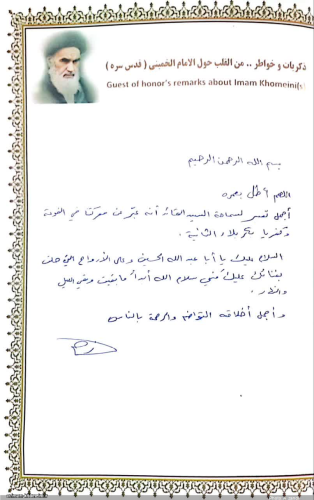 ذكريات و خواطر .. من القلب حول الامام الخميني ( قدس سره )
Guest of honor's remarks about Imam Khomeini(s)
بسم الله الرحمن الرحيم
اللهم أطل بعمره
أجمل تفسير لسماحة السيد القائد أنه عبّر عن معركتنا في
كربلاء الثانية .
السلام عليك يا أبا عبد الله الحسين وعلى الأرواح التي حلت
بفنائك عليك مني سلام الله أبداً ما بقيت وبقي الليل
والنهار .
وأجمل أخلاقه التواضع والرحمة بالناس